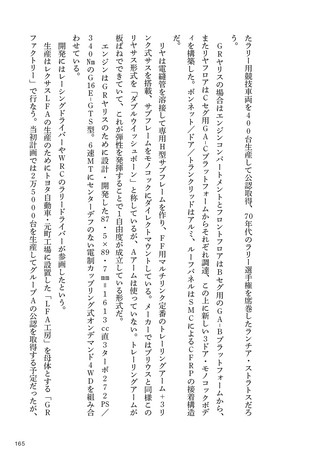 たラリー用競技車両を400台生産して公認取得、70年代のラリー選手権を席巻したランチア・ストラトスだろ
う。
GRヤリスの場合はエンジンコンパートメントとフロントフロアはBセグ用のGA-Bプラットフォームから、
またリヤフロアはCセグ用GA-Cプラットフォームからそれぞれ調達、この上に新しい3ドア・モノコックボデ
ィを構築した。ボンネット／ドア／トランクリッドはアルミ、ルーフパネルはSMCによるCFRPの接着構造
だ。
リヤは電縫管を溶接して専用H型サブフレームを作り、FF用マルチリンク定番のトレーリングアーム＋3リ
ンク式サスを搭載、サブフレームをモノコックにダイレクトマウントしている。メーカーではプリウスと同様この
リヤサス形式を「ダブルウイッシュボーン」と称しているが、Aアームは使っていない。トレーリングアームが
板ばねでできていて、これが弾性を発揮することで1自由度が成立している形式だ。
エンジンはGRヤリスのために設計・開発した87・5×89・7㎜＝1613㏄直3ターボ272PS／
340NmのG16E-GTS型。6速MTにセンターデフのない電制カップリング式オンデマンド4WDを組み合
わせている。
開発にはレーシングドライバーやWRCのラリードライバーが参画したという。
生産はレクサスLFAの生産のためにトヨタ自動車・元町工場に設置した「LFA工房」を母体とする「GR
ファクトリー」で行なう。当初計画では2万5000台を生産してグループAの公認を取得する予定だったが、
165